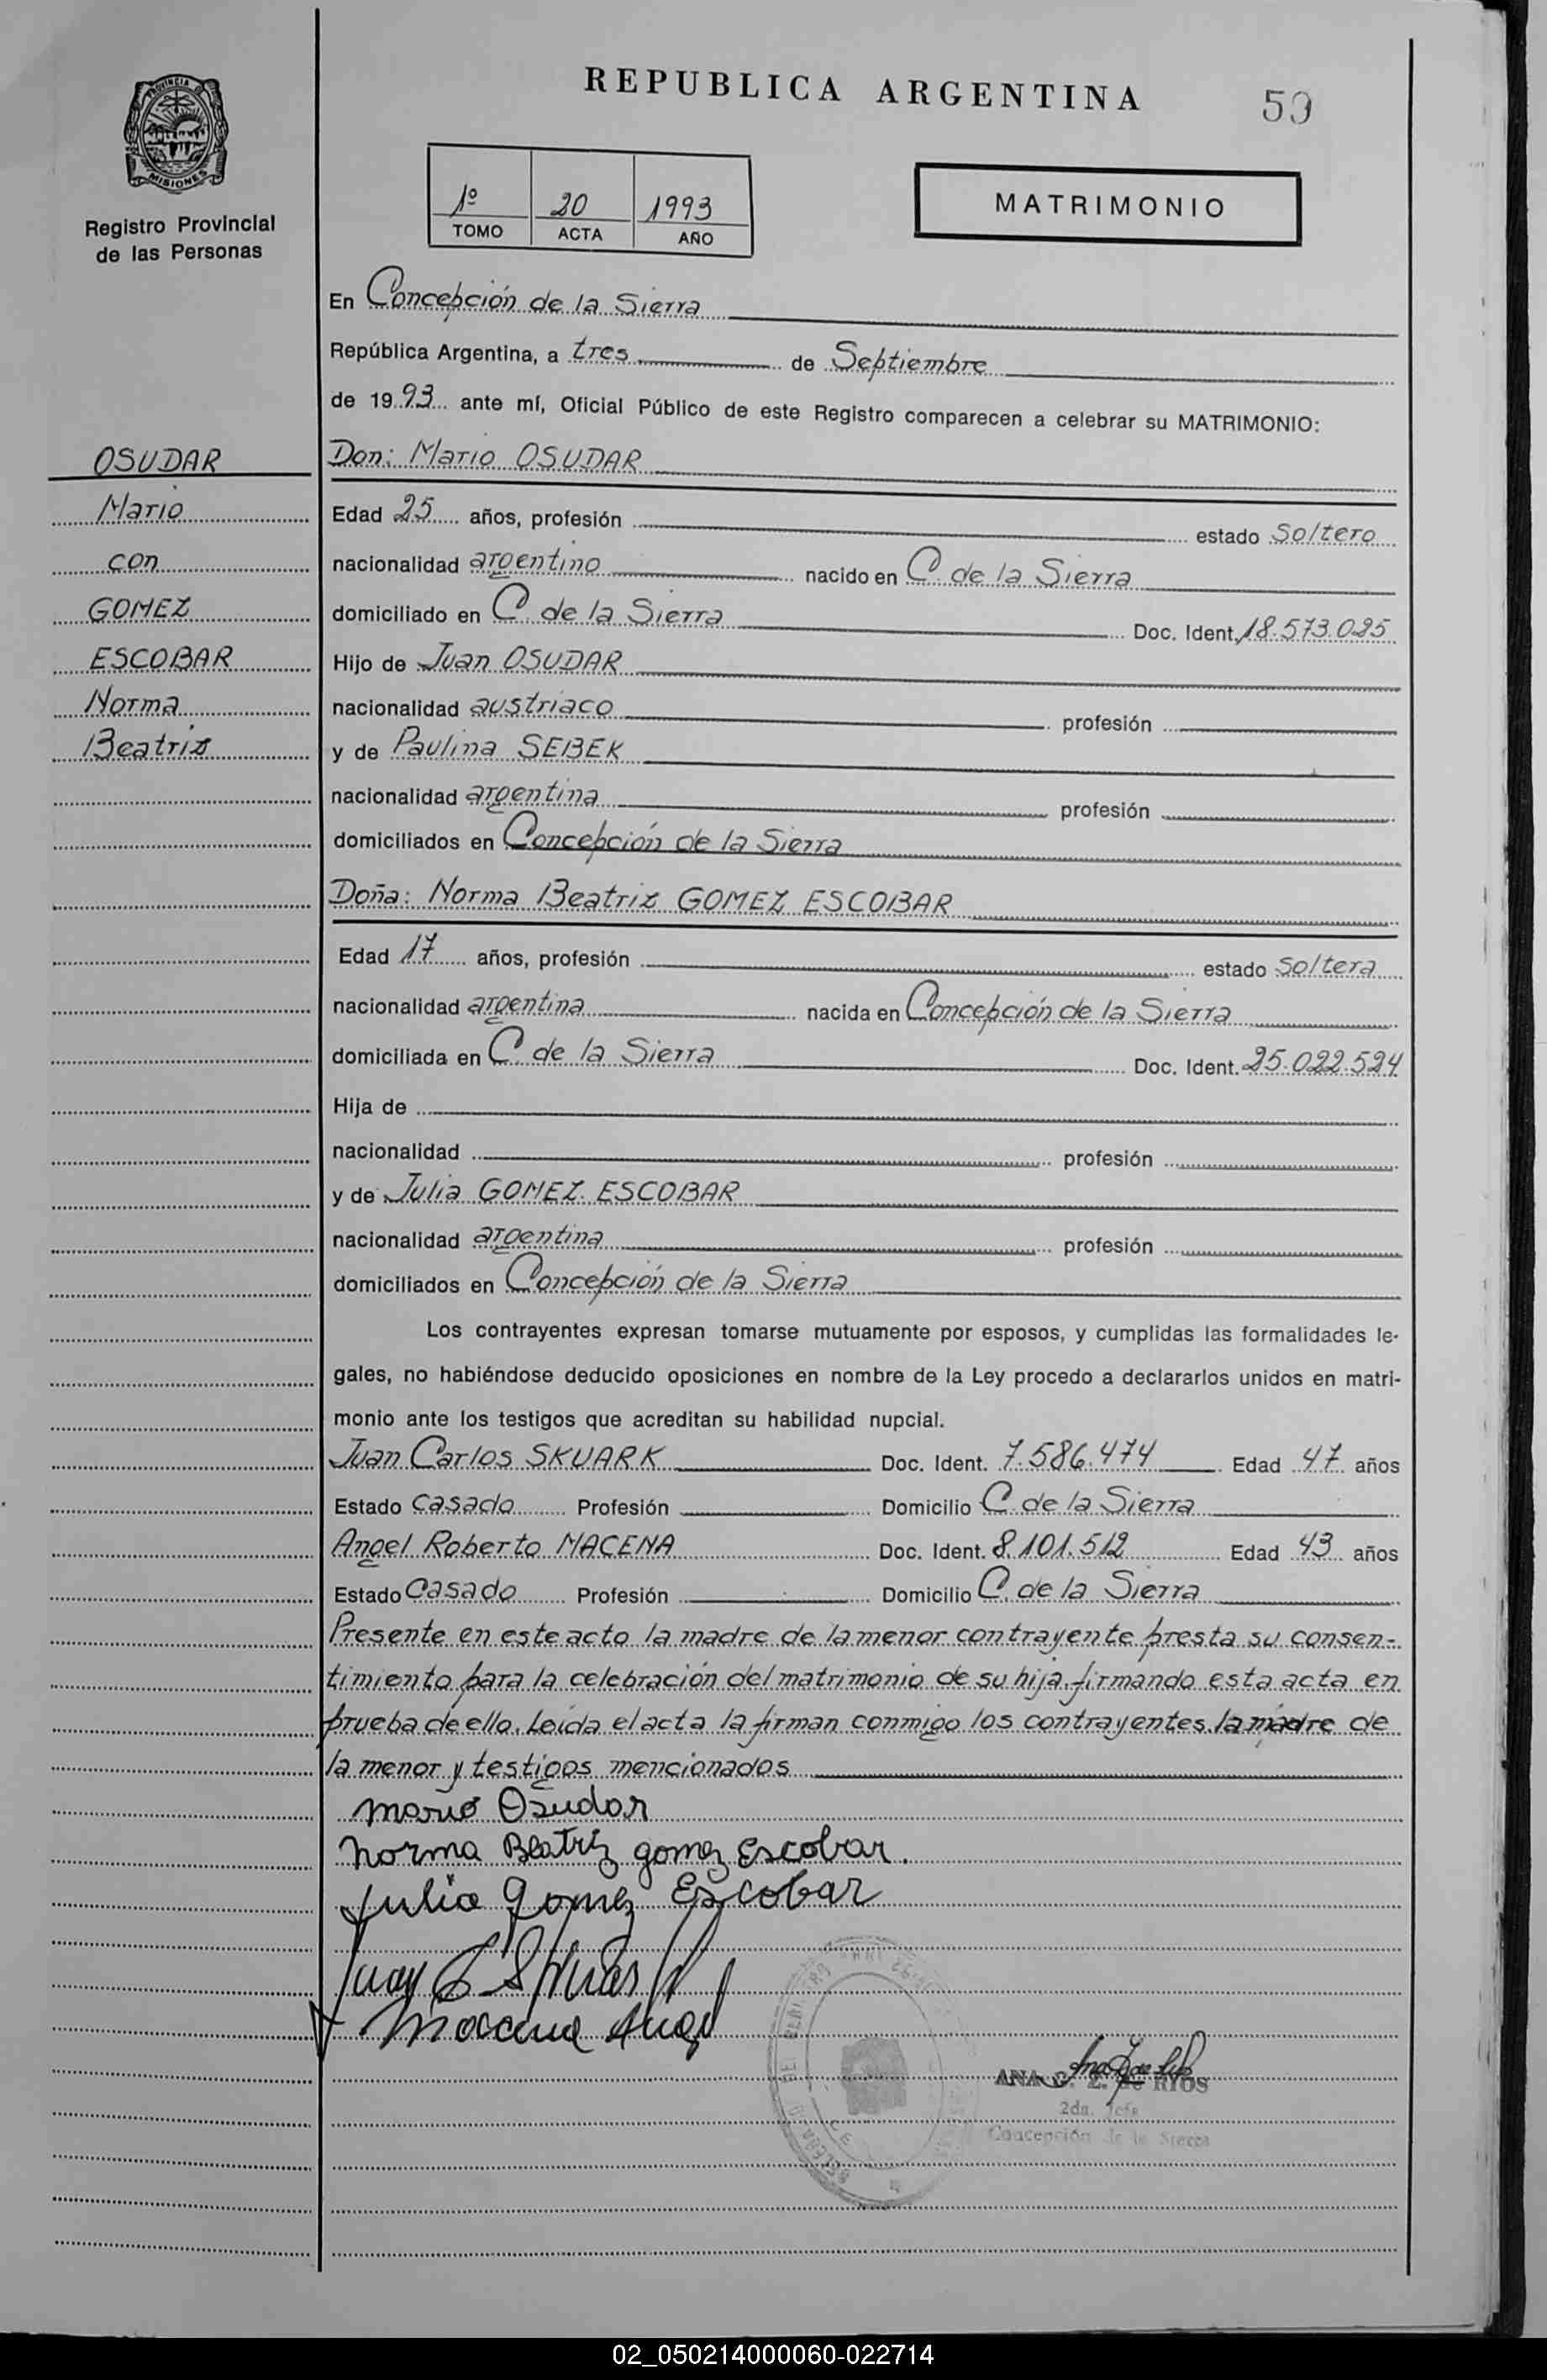 REPUBLICA ARGENTINA
59
PROVINCIA DE
MISIONES
Registro Provincial
de las Personas
1º 20 1993
TOMO ACTA AÑO
MATRIMONIO
En Concepción de la Sierra
República Argentina, a tres de Septiembre
de 1993 ante mí, Oficial Público de este Registro comparecen a celebrar su MATRIMONIO:
OSUDAR
Mario
con
GOMEZ
ESCOBAR
Norma
Beatriz
Don: Mario OSUDAR
Edad 25 años, profesión estado Soltero
nacionalidad argentino nacido en C. de la Sierra
domiciliado en C. de la Sierra Doc. Ident. 18.573.025
Hijo de Juan OSUDAR
nacionalidad austriaco profesión
y de Paulina SEBEK
nacionalidad argentina profesión
domiciliados en Concepción de la Sierra
Doña: Norma Beatriz GOMEZ ESCOBAR
Edad 17 años, profesión estado Soltera
nacionalidad argentina nacida en Concepción de la Sierra
domiciliada en C. de la Sierra Doc. Ident. 25.022.524
Hija de
nacionalidad profesión
y de Julia GOMEZ ESCOBAR
nacionalidad argentina profesión
domiciliados en Concepción de la Sierra
Los contrayentes expresan tomarse mutuamente por esposos, y cumplidas las formalidades le-
gales, no habiéndose deducido oposiciones en nombre de la Ley procedo a declararlos unidos en matri-
monio ante los testigos que acreditan su habilidad nupcial.
Juan Carlos SKUARK Doc. Ident. 7.586.474 Edad 47 años
Estado Casado Profesión Domicilio C. de la Sierra
Angel Roberto MACENA Doc. Ident. 8.101.512 Edad 43 años
Estado Casado Profesión Domicilio C. de la Sierra
Presente en este acto la madre de la menor contrayente presta su consen-
timiento para la celebración del matrimonio de su hija, firmando esta acta en
prueba de ello. Leída el acta la firman conmigo los contrayentes, la madre de
la menor y testigos mencionados
Mario Osudar
Norma Beatriz gomez Escobar.
Julia Gomez Escobar
Juan C
Macena Angel
ANA RIOS
2da. Jefa
Concepción de la Sierra
02_050214000060-022714